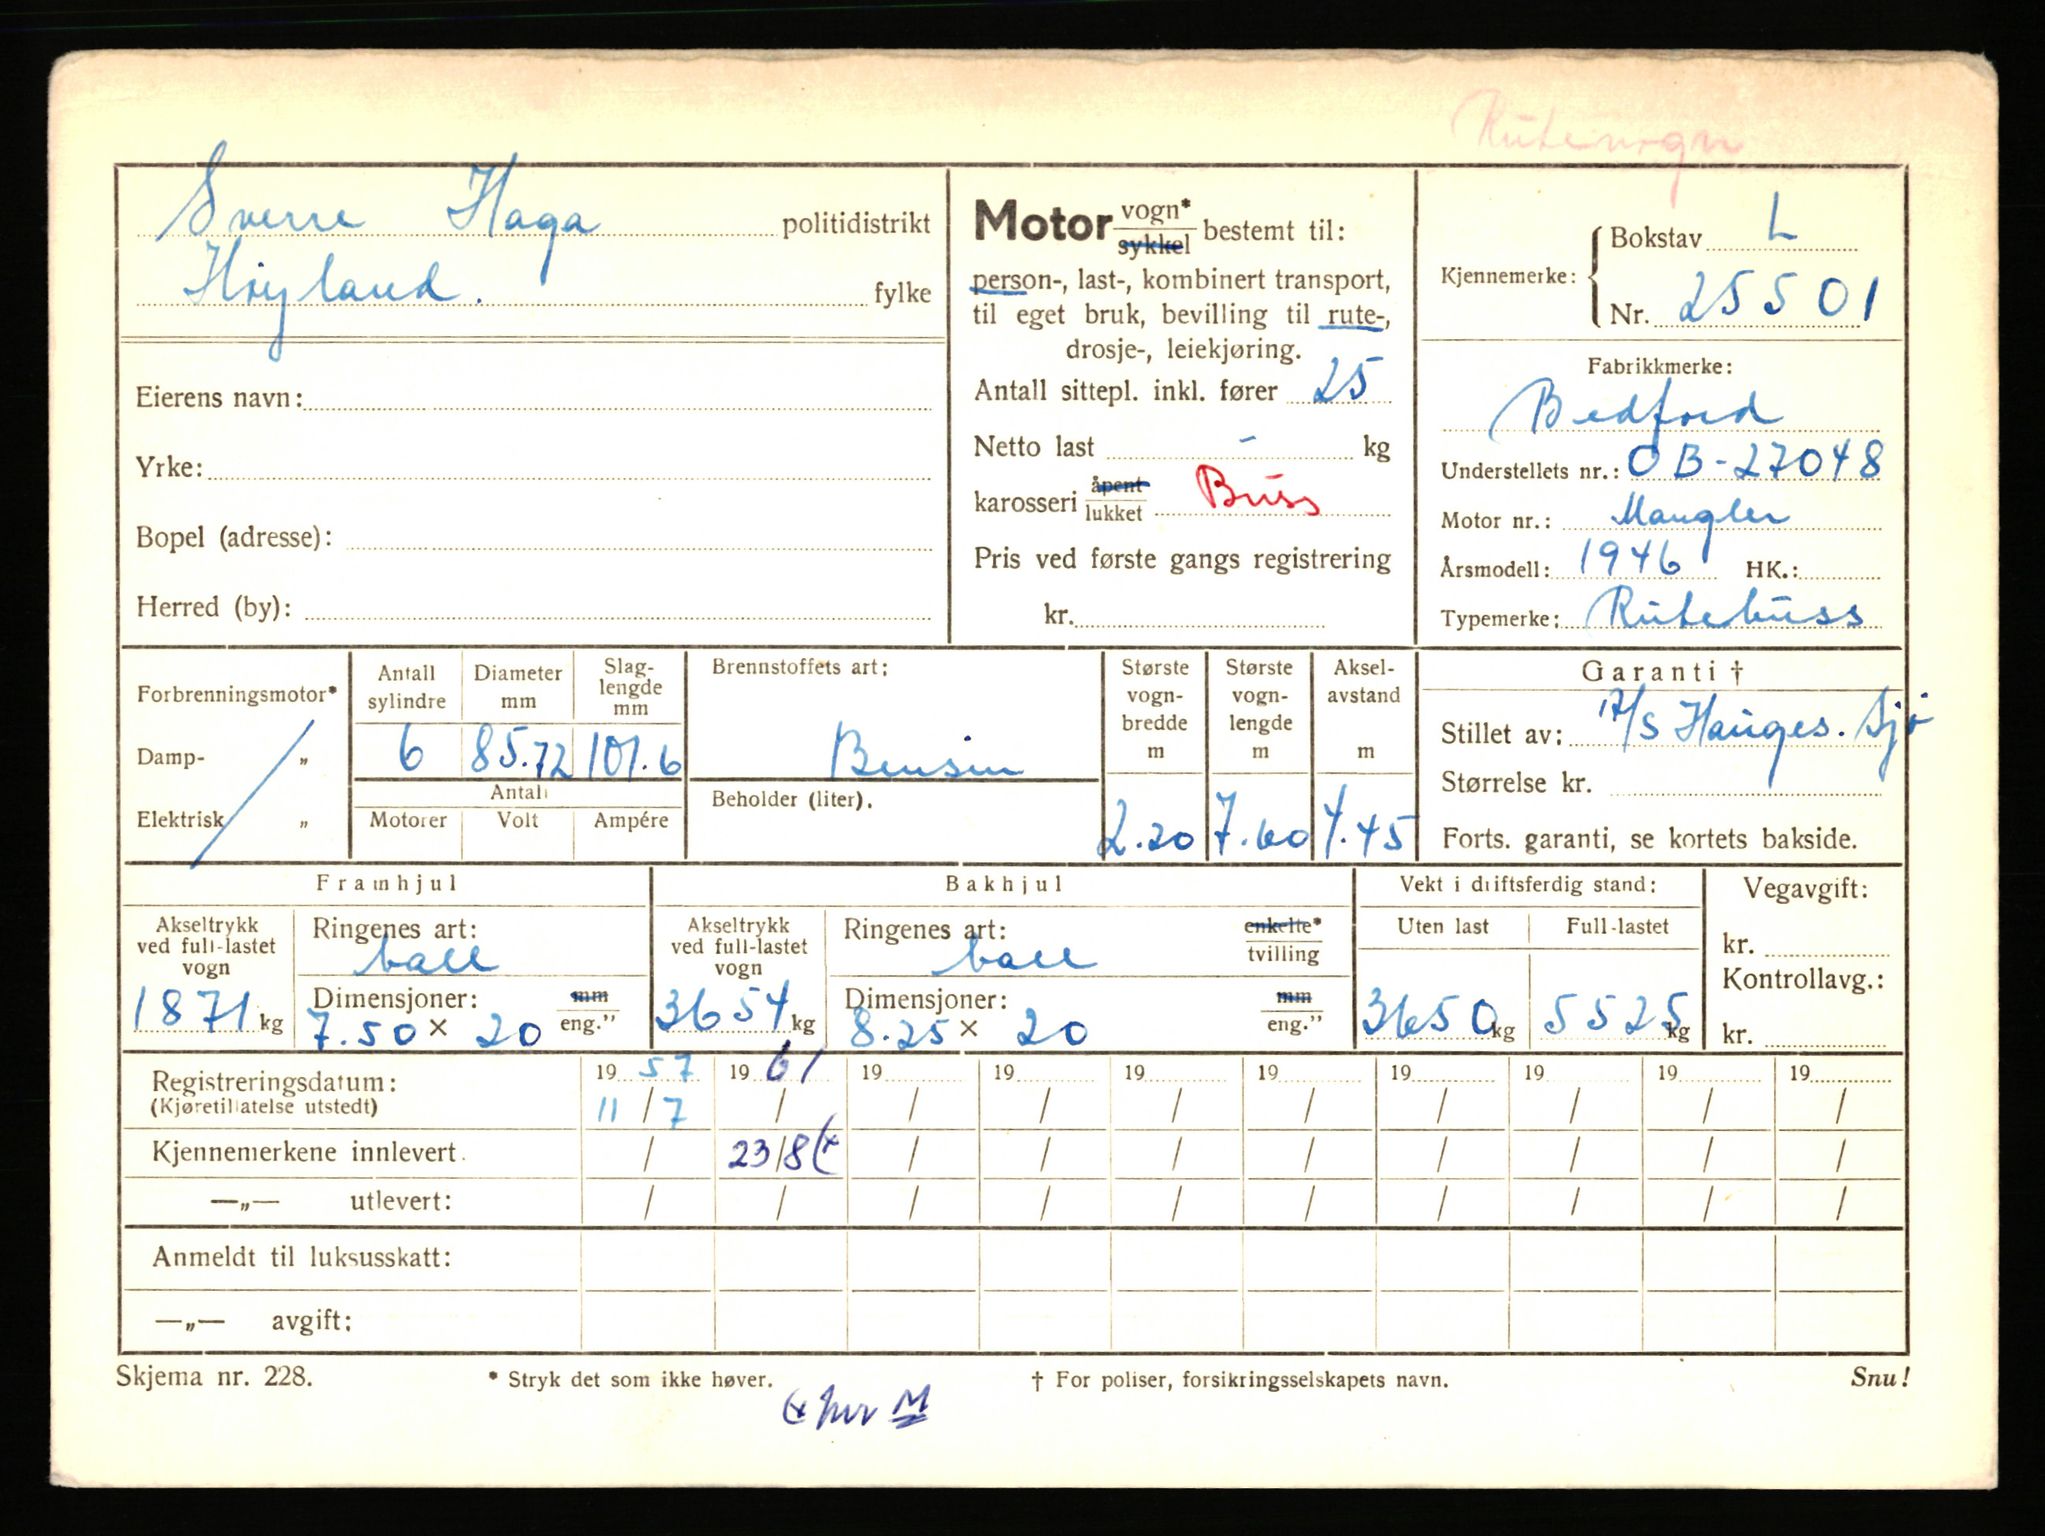 Rutevogn
Sverre Haga politidistrikt
Høyland. fylke
Eierens navn:
Yrke:
Bopel (adresse):
Herred (by):
Motor vogn* sykkel bestemt til:
person-, last-, kombinert transport,
til eget bruk, bevilling til rute-,
drosje-, leiekjøring.
Antall sittepl. inkl. fører 25
Netto last - kg
karosseri åpent lukket Buss
Pris ved første gangs registrering
kr.
Kjennemerke: Bokstav L
Nr. 25501
Fabrikkmerke:
Bedford
Understellets nr.: OB-27048
Motor nr.: Mangler
Årsmodell: 1946 HK.:
Typemerke: Rutebuss
Forbrenningsmotor*
Damp- „
Elektrisk „
Antall sylindre 6
Diameter mm 85.72
Slag-lengde mm 101.6
Antall
Motorer Volt Ampére
Brennstoffets art:
Bensin
Beholder (liter).
Største vogn-bredde m 2.20
Største vogn-lengde m 7.60
Aksel-avstand m 4.45
Garanti †
Stillet av: A/S Hauges. Sjø
Størrelse kr.
Forts. garanti, se kortets bakside.
Framhjul
Akseltrykk ved full-lastet vogn 1871 kg
Ringenes art: ball
Dimensjoner: 7.50 × 20 mm eng."
Bakhjul
Akseltrykk ved full-lastet vogn 3654 kg
Ringenes art: ball enkelte* tvilling
Dimensjoner: 8.25 × 20 mm eng."
Vekt i driftsferdig stand:
Uten last 3650 kg
Full-lastet 5525 kg
Vegavgift:
kr.
Kontrollavg.:
kr.
Registreringsdatum: 19 57 19 61 19 19 19 19 19 19 19 19
(Kjøretillatelse utstedt) 11/7 / / / / / / / / /
Kjennemerkene innlevert / 23/8 (x / / / / / / / /
—„— utlevert: / / / / / / / / / /
Anmeldt til luksusskatt:
—„— avgift:
Skjema nr. 228. * Stryk det som ikke høver. † For poliser, forsikringsselskapets navn. Snu!
(x M